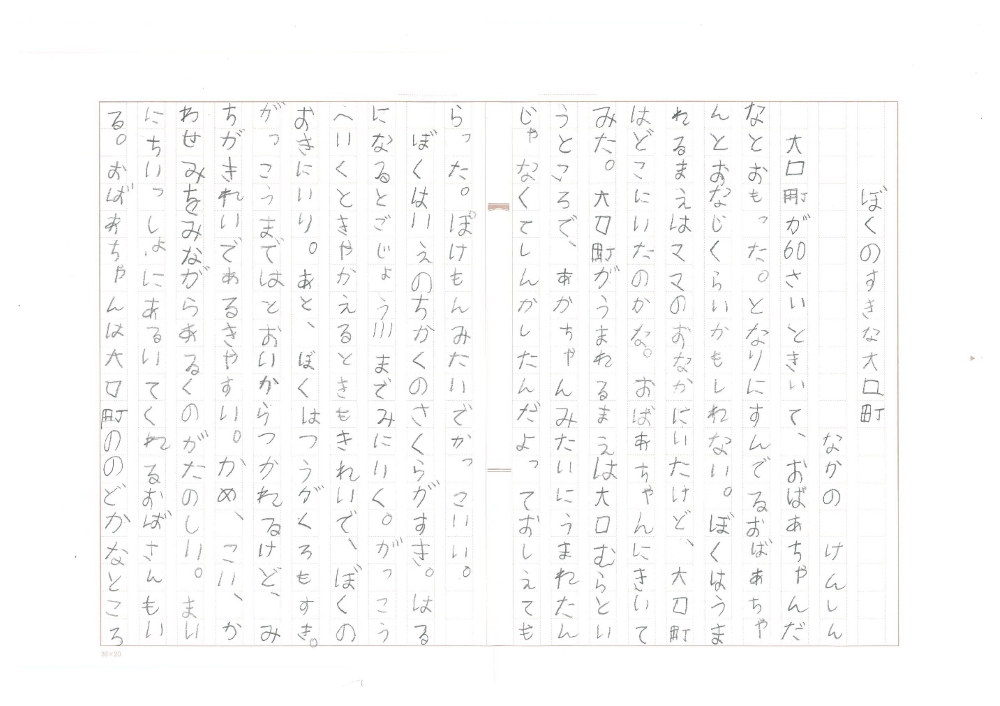 ぼくのすきな大口町
なかの けんしん
大口町が60さいときいて、おばあちゃんだ
なとおもった。となりにすんでるおばあちゃ
んとおなじくらいかもしれない。ぼくはうま
れるまえはママのおなかにいたけど、大口町
はどこにいたのかな。おばあちゃんにきいて
みた。大口町がうまれるまえは大口むらとい
うところで、あかちゃんみたいにうまれたん
じゃなくてしんかしたんだよっておしえても
らった。ぽけもんみたいでかっこいい。
ぼくはいえのちかくのさくらがすき。はる
になるとごじょう川までみにいく。がっこう
へいくときやかえるときもきれいで、ぼくの
おきにいり。あと、ぼくはつうがくろもすき。
がっこうまではとおいからつかれるけど、み
ちがきれいであるきやすい。かめ、こい、か
わせみをみながらあるくのがたのしい。まい
にちいっしょにあるいてくれるおばさんもい
る。おばあちゃんは大口町ののどかなところ
20×20